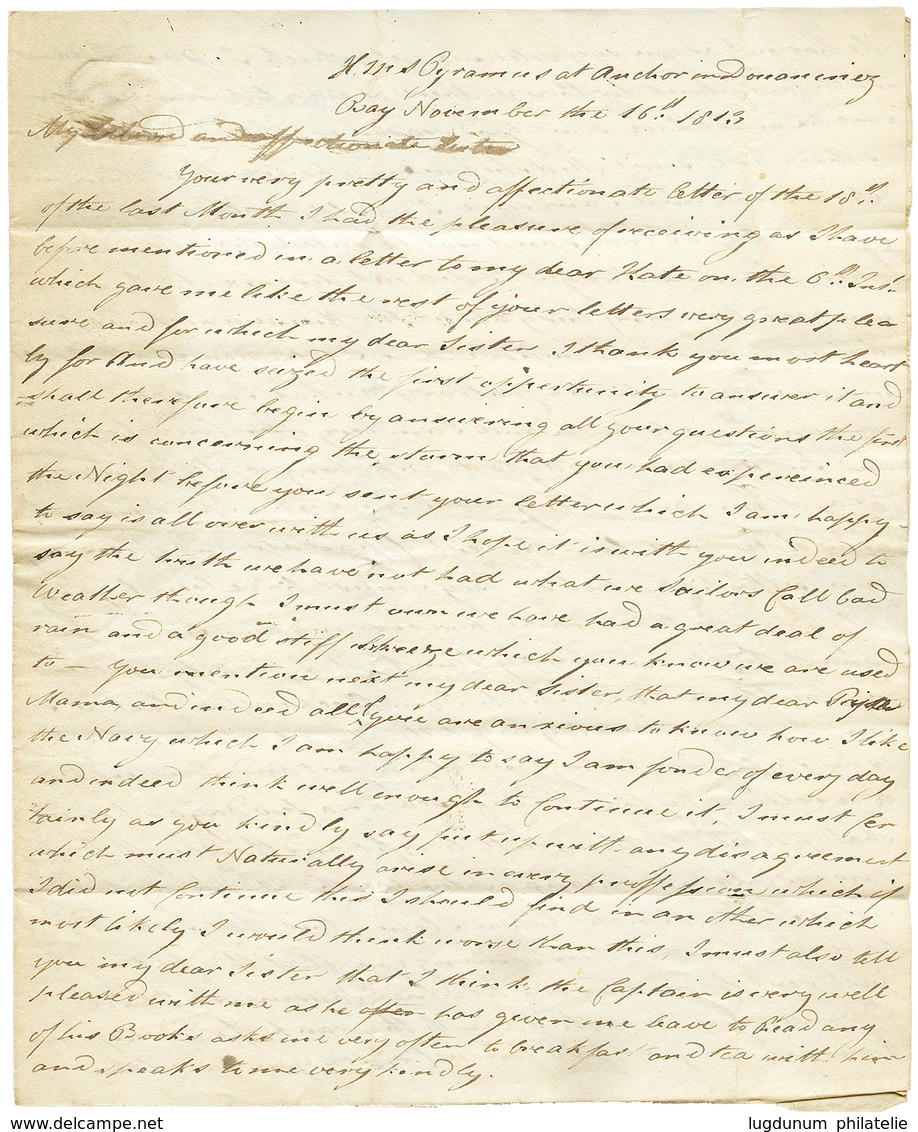 H.M.S Pyramus at Anchor in Douaninez
Bay November the 16th 1813
My and affectionate Sister
Your very pretty and affectionate letter of the 18th
of the last Month I had the pleasure of receiving as I have
before mentioned in a letter to my dear Kate on the 6th Inst
which gave me like the rest of your letters very great plea
sure and for which my dear Sister I thank you most heart
ly for And have seized the first oppertunity to answer it and
shall therefore begin by answering all your questions the first
which is concerning the storm that you had experienced
the Night before you sent your letter which I am happy
to say is all over with us as I hope it is with you indeed to
say the truth we have not had what we Sailors Call bad
Weather though I must own we have had a great deal of
rain and a good stiff breeze which you know we are used
to — You mention next my dear Sister that my dear
Mama and indeed all are anxious to know how I like
the Navy which I am happy to say I am fonder of every day
and indeed think well enough to Continue it, I must Cer
tainly as you kindly say put up with any disagreement
which must Naturally arise in every proffession which if
I did not Continue this I should find in an other which
most likely I would think worse than this, I must also tell
you my dear Sister that I think the Captain is very well
pleased with me as he often has given me leave to Read any
of his Books asks me very often to breakfast and tea with him
and speaks to me very kindly.
delcampe.net
lugdunum philatelie